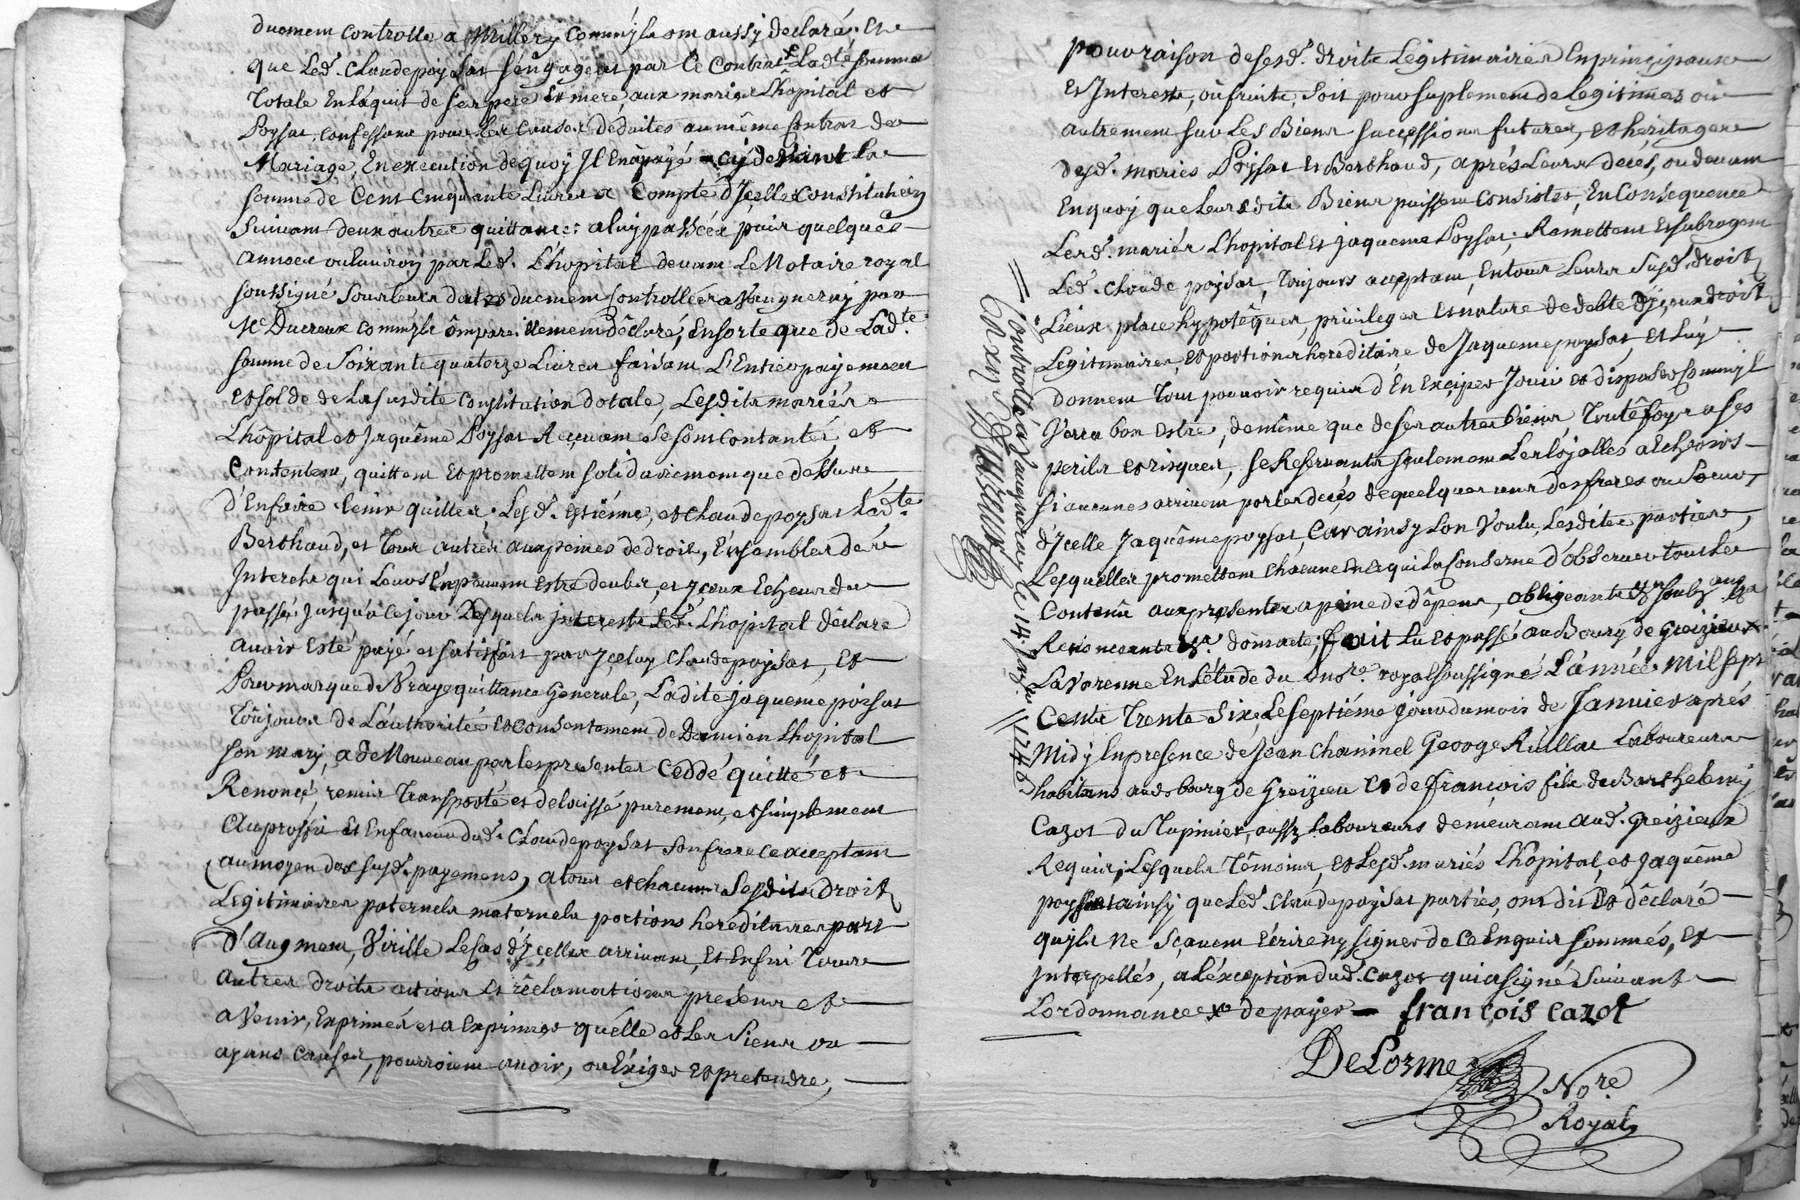 duemem controlle a Millery comm'ils om aussy declaré, et
que led. Claude poysat s'engageat par le contrat lad.te somme
Totale En l'aquit de ses pere et mere, aux mariés L'hopital et
Poysat, confessans pour les causes deduites au même contrat de
Mariage, En execution de quoy Il En a payé cy devant la
somme de Cent Cinquante Livres a Compte d'Jcelle Constitution
Suivam deux autres quittances a luy passées puis quelques
années ou Environ par led. L'hopital devam Le Notaire royal
soussigné sous leurs dattes duemem controllées a Vaugneray par
Mr. Ducreux comm'ils om pareillemem déclaré, En sorte que de Lad.te
somme de Soixante quatorze Livres faisam L'Entier payemem
et solde de la susdite constitution dotale, Lesdits mariés
L'hôpital et Jaquême Poysat se sont contantés et
Contentem, quittem et promettem solidairemem que dessus
d'En faire tenir quittes, Lesd. Estiénne, et Claude poysat Lad.te
Berthaud, et Tous autres aux peines de droit, Ensembles de
Interets qui Leurs En peuvem estre deubs, et yceux Echeus du
passé Jusqu'a ce jour Desquels interests Led. L'hopital déclare
avoir Esté payé et satisfait par yceluy Claude poysat, Et
Pour marque de Vraye quittance Generale, Ladite Jaqueme poysat
Toûjours de L'authorité et consentemem de Damien L'hopital
son mary, a de Nouveau par les presentes Ceddé quitté et
Renoncé, remis Transporté et delaissé puremem, et simplemem
Au proffit Et En faveur dud. Claude poysat son frere ce acceptam
au moyen des susd. payemens, a tous et chacuns Sesdits Droits
Legitimaires paternels maternels portions hereditaires part
d'Augmem, Virille Le cas d'Jcelles arrivam, Et Enfin Tous
autres droits actions Et réclamations presens et
a Venir, Exprimés et a Exprimer qu'elle et Les Siens ou
ayans causes, pourroiem avoir, ou Exiger et pretendre,
pour raison de sesd. droits Légitimaires En principaux
Et Interests, ou fruits, Soit pour suplemem de Legitimes ou
autremem sur Les Biens successions futures, et heritages
desd. mariés Poysat Et Berthaud, aprés Leurs decés, ou devam
En quoy que Leursdits Biens puissem Consister, En Consequence
Lesd. mariés L'hopital Et Jaqueme Poysat, Remettem Et subrogem
Led. Claude poysat, Toujours acceptam, En tous Leurs Susd. droits
Lieux place hypotêques, privileges Et nature de debte d'Jceux droits
Legitimaires, et portions hereditaire de Jaqueme poysat, et Luy
Donnem Tout pouvoir requis d'En Exciper Jouir et disposer Comm'il
Verra bon estre, de même que de ses autres biens, Toutêfoys a ses
perils et risques, se Reservants seulemem Les loyalles a Echeoirs
si aucunes arrivem par les decés de quelques uns des freres ou Soeurs
d'Jcelle Jaquême poysat, Car ainsy L'on Voulu, Lesdites parties,
Lesquelles promettem Chacune En ce qui La conserne d'Observer tout Le
Contenu aux presentes a peine de dêpens, obligeants
Renonceants &a. dont acte; fait Lu et passé au Bourg de Greizieu
La Varenne En L'étude du d. no.re royal soussigné L'année Mil sept
Cents Trente Six, Le Septiéme jour du mois de Janvier aprés
Midy En presence de Jean Chaninel George Ruillat Laboureurs
habitans aud. bourg de Greizieu Et de François fils de Barthelemy
Cazot du Tupinier, aussy Laboureurs demeuram aud. Greizieux
Requis, Lesquels Témoins, et Lesd. mariés L'hopital, et Jaquême
poysat ainsy que Led. Claude poysat parties, om dit Et déclaré
qu'ils Ne Sçavem Ecrire ny signer de ce Enquis sommés, et
Interpellés, a L'éxception dud. Cazot qui a signé Suivant
L'ordonnance de payer — françois cazot
DeLorme No.re
Royal
Controllé a Vaugneray Le 14. Janv. 1746
Ducreux